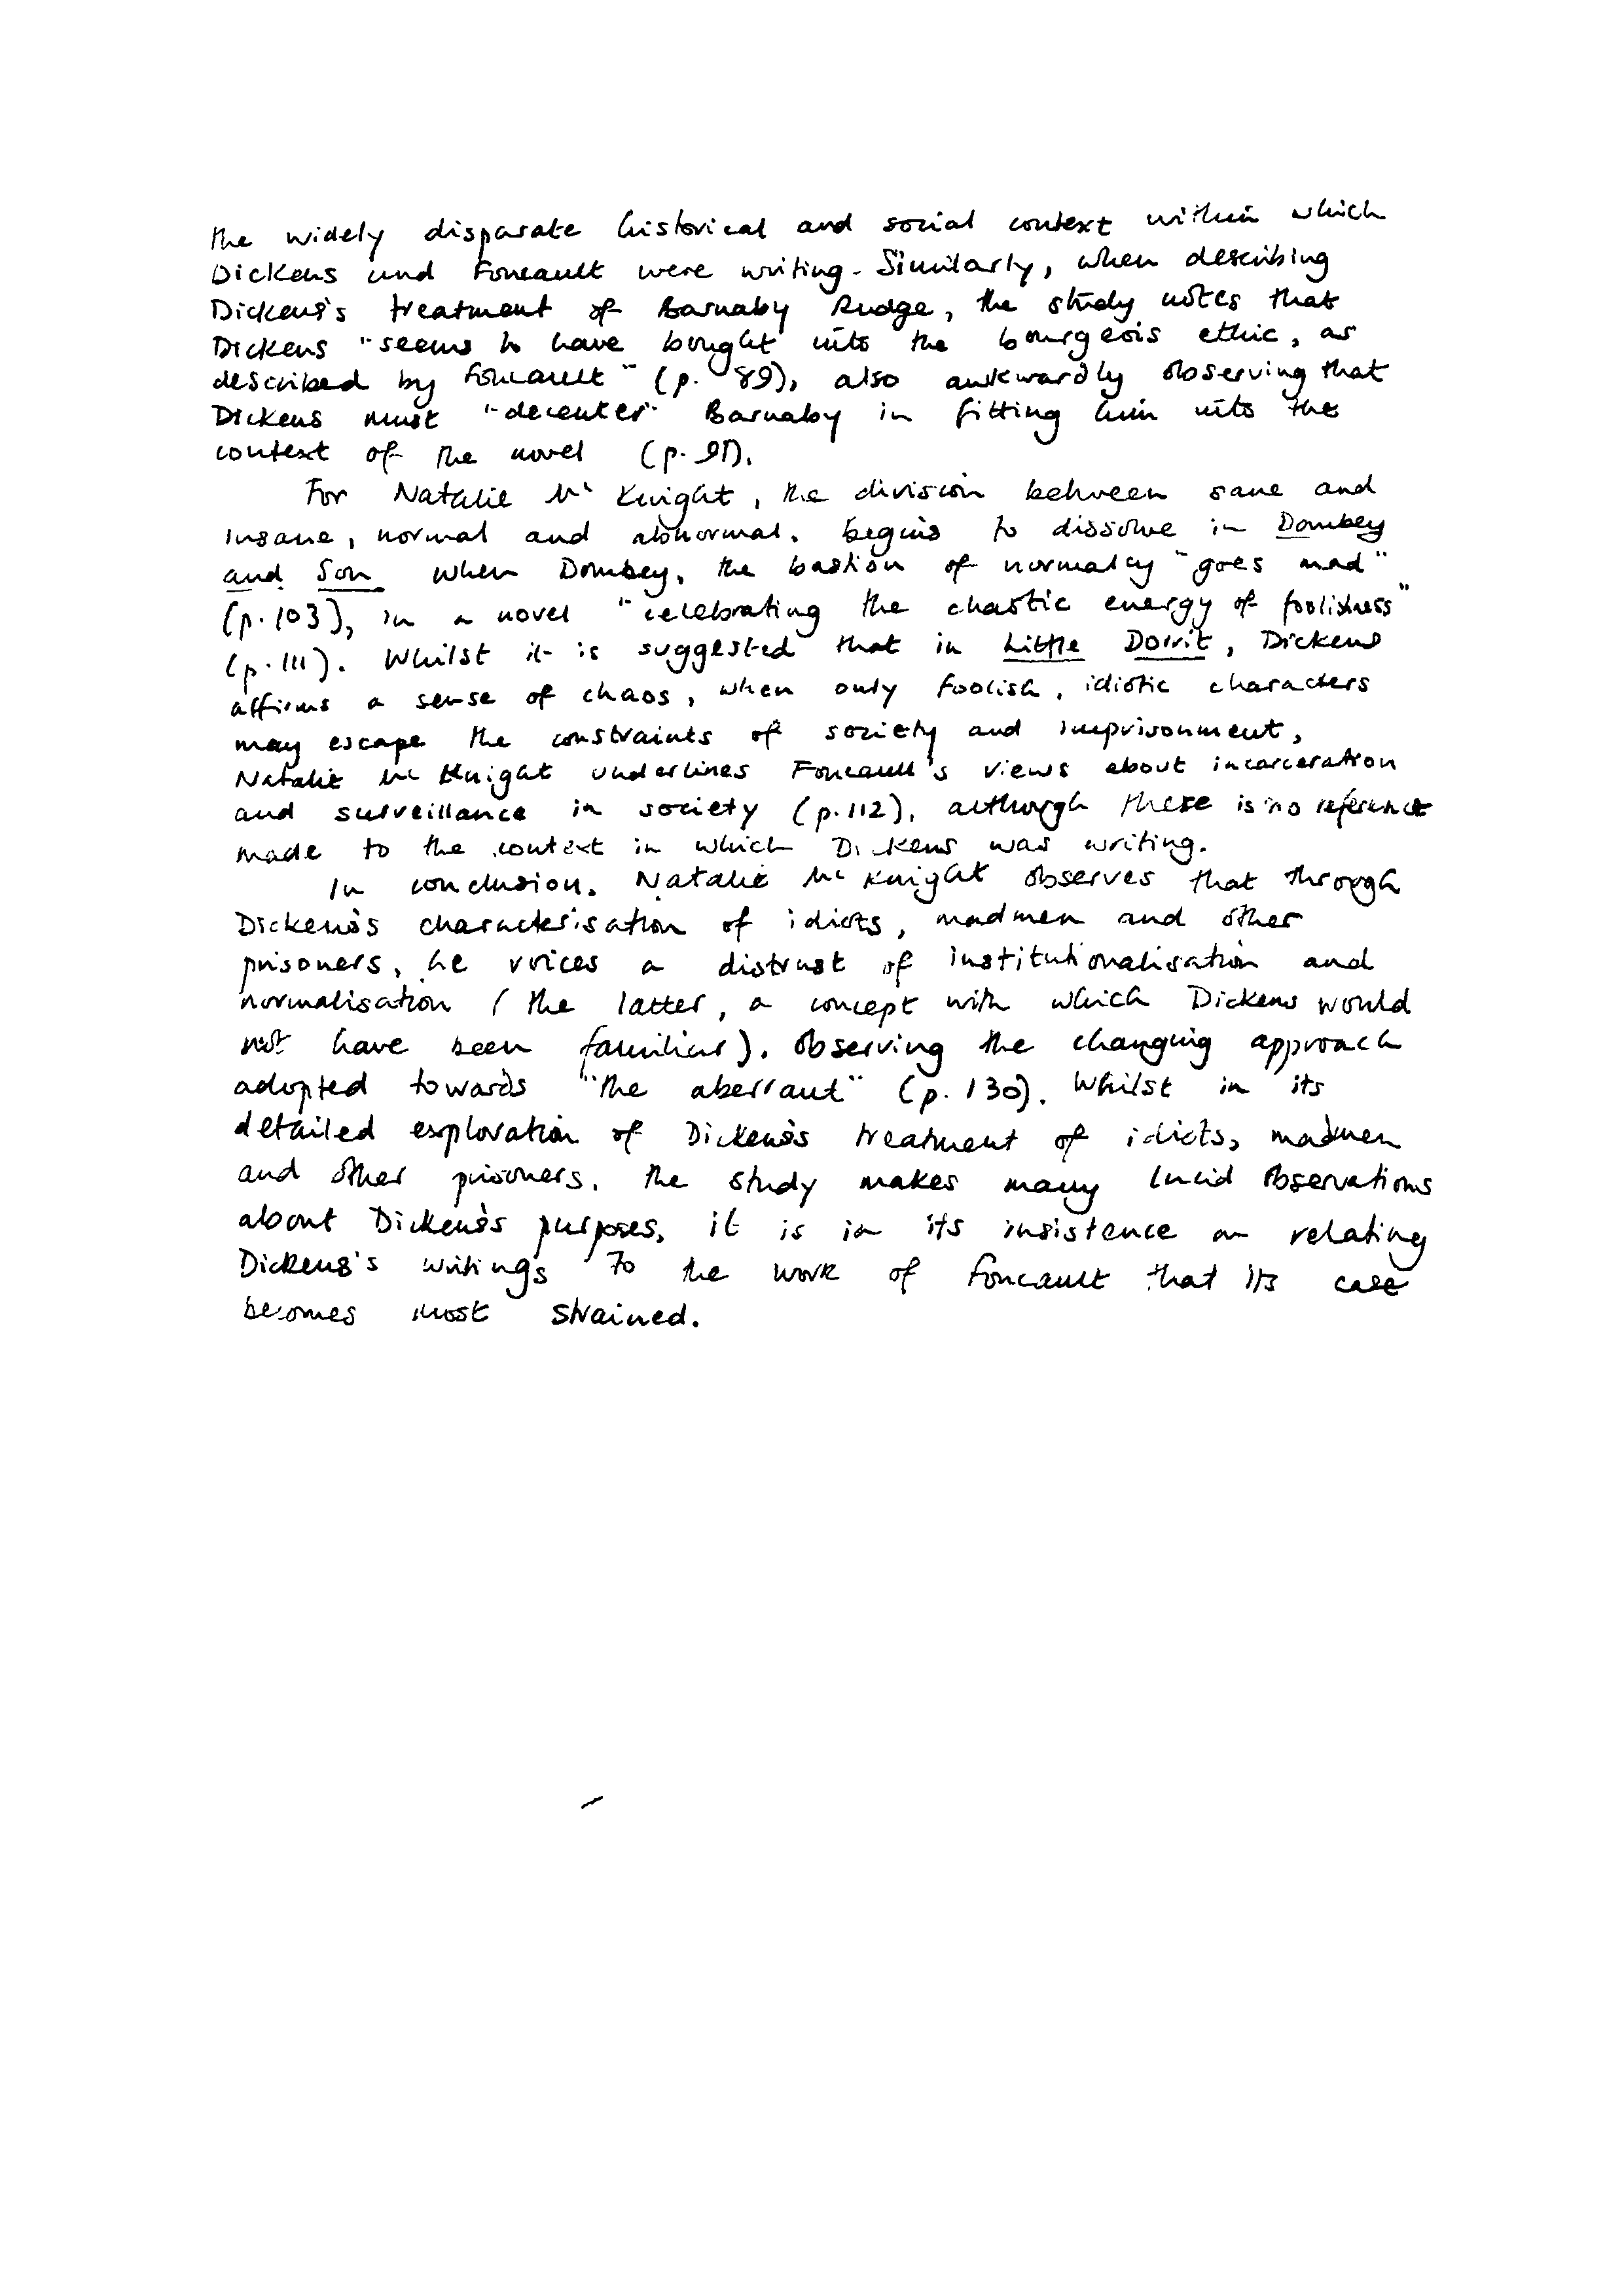 the widely disparate historical and social context within which
Dickens and Foucault were writing. Similarly, when describing
Dickens's treatment of Barnaby Rudge, the study notes that
Dickens "seems to have bought into the bourgeois ethic, as
described by Foucault" (p. 89), also awkwardly observing that
Dickens must "decenter" Barnaby in fitting him into the
context of the novel (p. 91).
For Natalie Mc Knight, the division between sane and
insane, normal and abnormal, begins to dissolve in Dombey
and Son when Dombey, the bastion of normalcy "goes mad"
(p. 103), in a novel "celebrating the chaotic energy of foolishness"
(p. 111). Whilst it is suggested that in Little Dorrit, Dickens
affirms a sense of chaos, when only foolish, idiotic characters
may escape the constraints of society and imprisonment,
Natalie Mc Knight underlines Foucault's views about incarceration
and surveillance in society (p. 112), although there is no reference
made to the context in which Dickens was writing.
In conclusion, Natalie Mc Knight observes that through
Dickens's characterisation of idiots, madmen and other
prisoners, he voices a distrust of institutionalisation and
normalisation (the latter, a concept with which Dickens would
not have been familiar), observing the changing approach
adopted towards "the aberrant" (p. 130). Whilst in its
detailed exploration of Dickens's treatment of idiots, madmen
and other prisoners, the study makes many lucid observations
about Dickens's purposes, it is in its insistence on relating
Dickens's writings to the work of Foucault that its case
becomes most strained.